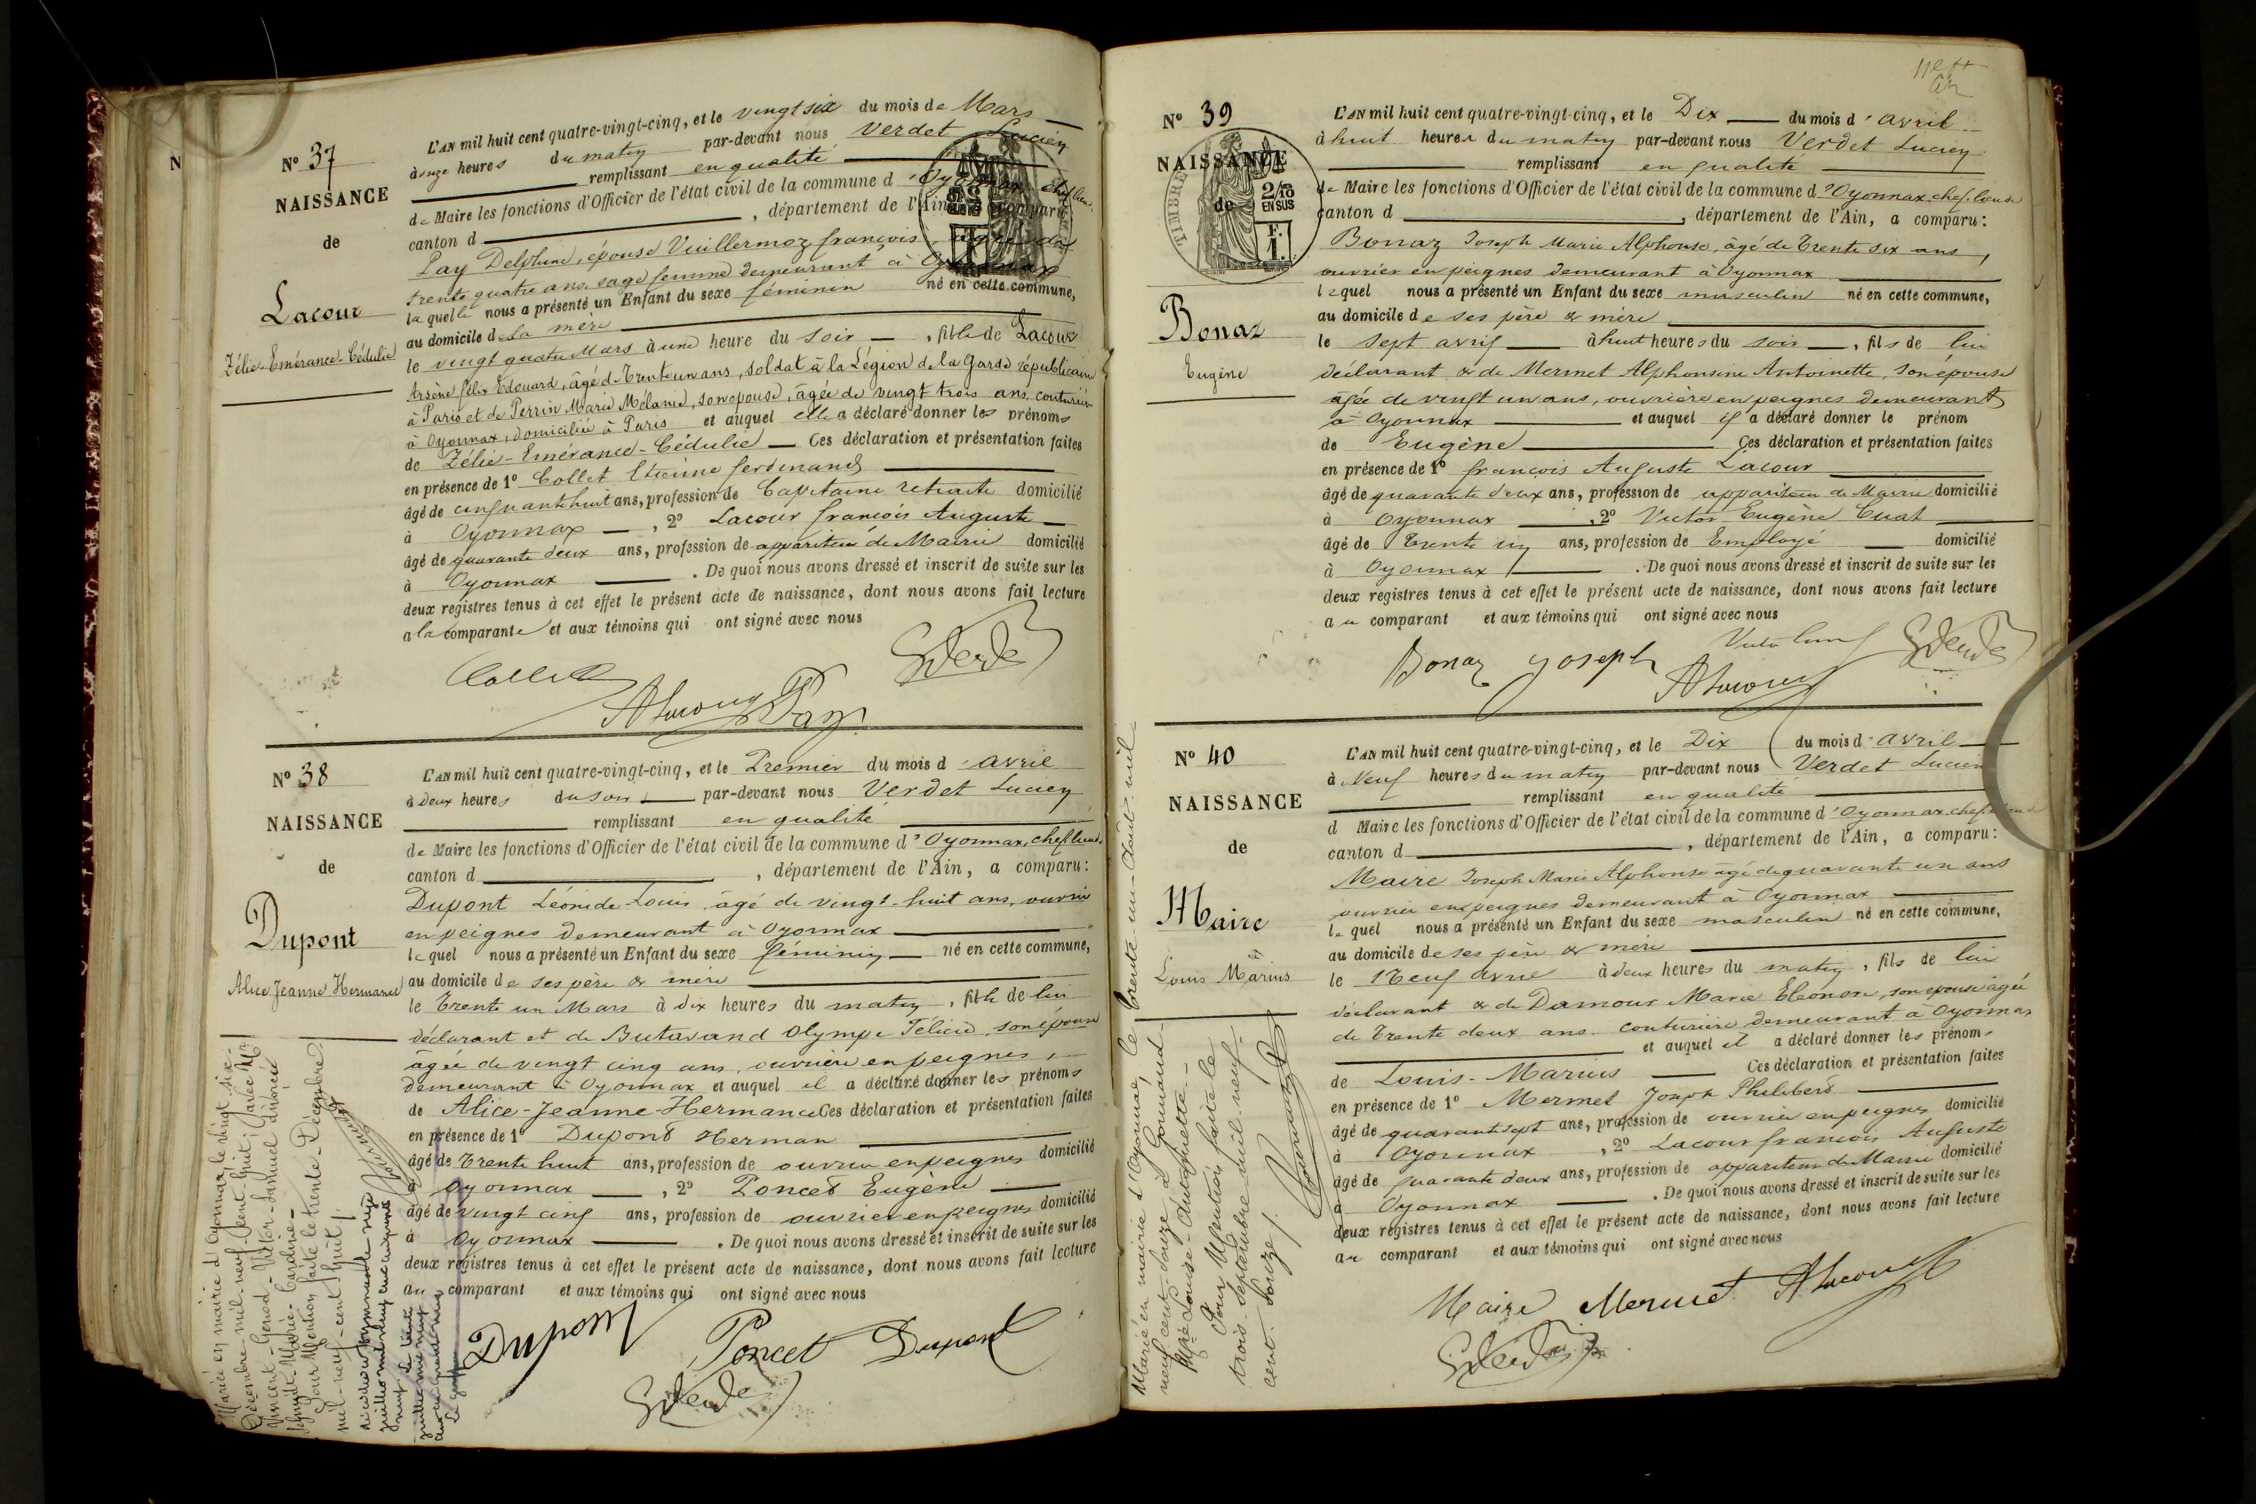 N
N° 37
NAISSANCE
de
Lacour
Zélie-Emérance-Cédulie
L'AN mil huit cent quatre-vingt-cinq, et le vingt six du mois de Mars
à onze heures du matin par-devant nous Verdet Lucien
remplissant en qualité
de Maire les fonctions d'Officier de l'état civil de la commune d'Oyonnax chef lieu
canton d , département de l'Ain, a comparu:
Pay Delphine, épouse Vuillermoz françois, âgée de
trente quatre ans, sage femme demeurant à Oyonnax
laquelle nous a présenté un Enfant du sexe féminin né en cette commune,
au domicile de la mère
le vingt quatre Mars à une heure du soir , fille de Lacour
Arsène félix Edouard, âgé de Trente un ans, soldat à la Légion de la Garde républicaine
à Paris et de Perrin Marie Mélanie, son épouse, âgée de vingt trois ans, couturière
à Oyonnax, domiciliée à Paris et auquel elle a déclaré donner les prénoms
de Zélie-Emérance-Cédulie Ces déclaration et présentation faites
en présence de 1° Collet Etienne ferdinand
âgé de cinquante huit ans, profession de Capitaine retraité domicilié
à Oyonnax , 2° Lacour françois Auguste
âgé de quarante deux ans, profession de appariteur de Mairie domicilié
à Oyonnax . De quoi nous avons dressé et inscrit de suite sur les
deux registres tenus à cet effet le présent acte de naissance, dont nous avons fait lecture
a la comparante et aux témoins qui ont signé avec nous
Collet
ALacour Pay
Verdet
N° 38
NAISSANCE
de
Dupont
Alice Jeanne Hermance
L'AN mil huit cent quatre-vingt-cinq, et le Premier du mois d'avril
à deux heures du soir par-devant nous Verdet Lucien
remplissant en qualité
de Maire les fonctions d'Officier de l'état civil de la commune d'Oyonnax, chef lieu de
canton d , département de l'Ain, a comparu:
Dupont Léonide Louis âgé de vingt-huit ans, ouvrier
en peignes demeurant à Oyonnax
lequel nous a présenté un Enfant du sexe féminin né en cette commune,
au domicile de ses père & mère
le Trente un Mars à dix heures du matin , fille de lui
déclarant et de Butavand Olympe Félicie, son épouse
âgée de vingt cinq ans, ouvrière en peignes,
demeurant à Oyonnax et auquel il a déclaré donner les prénoms
de Alice-Jeanne-Hermance Ces déclaration et présentation faites
en présence de 1° Dupont Herman
âgé de Trente huit ans, profession de ouvrier en peignes domicilié
à Oyonnax , 2° Poncet Eugène
âgé de vingt cinq ans, profession de ouvrier en peignes domicilié
à Oyonnax . De quoi nous avons dressé et inscrit de suite sur les
deux registres tenus à cet effet le présent acte de naissance, dont nous avons fait lecture
au comparant et aux témoins qui ont signé avec nous
Dupont Poncet Dupont
Verdet
Mariée en mairie d'Oyonnax le vingt-six-
Décembre-mil-neuf-cent-huit, avec Mr
Vincent-Gerod-Victor-Samuel divorcé
Schmidt-Marie-Caroline-
Pour Mention faite le trente-Décembre
mil-neuf-cent-huit
N° 39
NAISSANCE
de
TIMBRE
2/10 EN SUS
F. 1.
Bonaz
Eugène
L'AN mil huit cent quatre-vingt-cinq, et le Dix du mois d'avril
à huit heures du matin par-devant nous Verdet Lucien
remplissant en qualité
de Maire les fonctions d'Officier de l'état civil de la commune d'Oyonnax, chef lieu de
canton d , département de l'Ain, a comparu:
Bonaz Joseph Marie Alphonse, âgé de Trente six ans,
ouvrier en peignes demeurant à Oyonnax
lequel nous a présenté un Enfant du sexe masculin né en cette commune,
au domicile de ses père & mère
le Sept avril à huit heures du soir , fils de lui
déclarant & de Mermet Alphonsine Antoinette, son épouse
âgée de vingt un ans, ouvrière en peignes demeurant
à Oyonnax et auquel il a déclaré donner le prénom
de Eugène Ces déclaration et présentation faites
en présence de 1° françois Auguste Lacour
âgé de quarante deux ans, profession de appariteur de Mairie domicilié
à Oyonnax , 2° Victor Eugène Cuat
âgé de Trente un ans, profession de Employé domicilié
à Oyonnax . De quoi nous avons dressé et inscrit de suite sur les
deux registres tenus à cet effet le présent acte de naissance, dont nous avons fait lecture
au comparant et aux témoins qui ont signé avec nous
Bonaz Joseph ALacour Verdet
N° 40
NAISSANCE
de
Maire
Louis Marius
L'AN mil huit cent quatre-vingt-cinq, et le Dix du mois d'avril
à Neuf heures du matin par-devant nous Verdet Lucien
remplissant en qualité
d Maire les fonctions d'Officier de l'état civil de la commune d'Oyonnax chef lieu de
canton d , département de l'Ain, a comparu:
Maire Joseph Marie Alphonse âgé de quarante un ans
ouvrier en peignes demeurant à Oyonnax
lequel nous a présenté un Enfant du sexe masculin né en cette commune,
au domicile de ses père & mère
le Neuf avril à deux heures du matin , fils de lui
déclarant & de Damour Marie Eléonore, son épouse âgée
de Trente deux ans couturière demeurant à Oyonnax
et auquel il a déclaré donner les prénoms
de Louis-Marius Ces déclaration et présentation faites
en présence de 1° Mermet Joseph Philibert
âgé de quarante sept ans, profession de ouvrier en peignes domicilié
à Oyonnax , 2° Lacour françois Auguste
âgé de quarante deux ans, profession de appariteur de Mairie domicilié
à Oyonnax . De quoi nous avons dressé et inscrit de suite sur les
deux registres tenus à cet effet le présent acte de naissance, dont nous avons fait lecture
au comparant et aux témoins qui ont signé avec nous
Maire Mermet ALacour
Verdet
Marié en mairie d'Oyonnax, le trente-un-Août-mil-
neuf cent-douze à Gounand-
Marie Louise-Antoinette-
Pour Mention faite le
trois-septembre-mil-neuf-
cent-douze